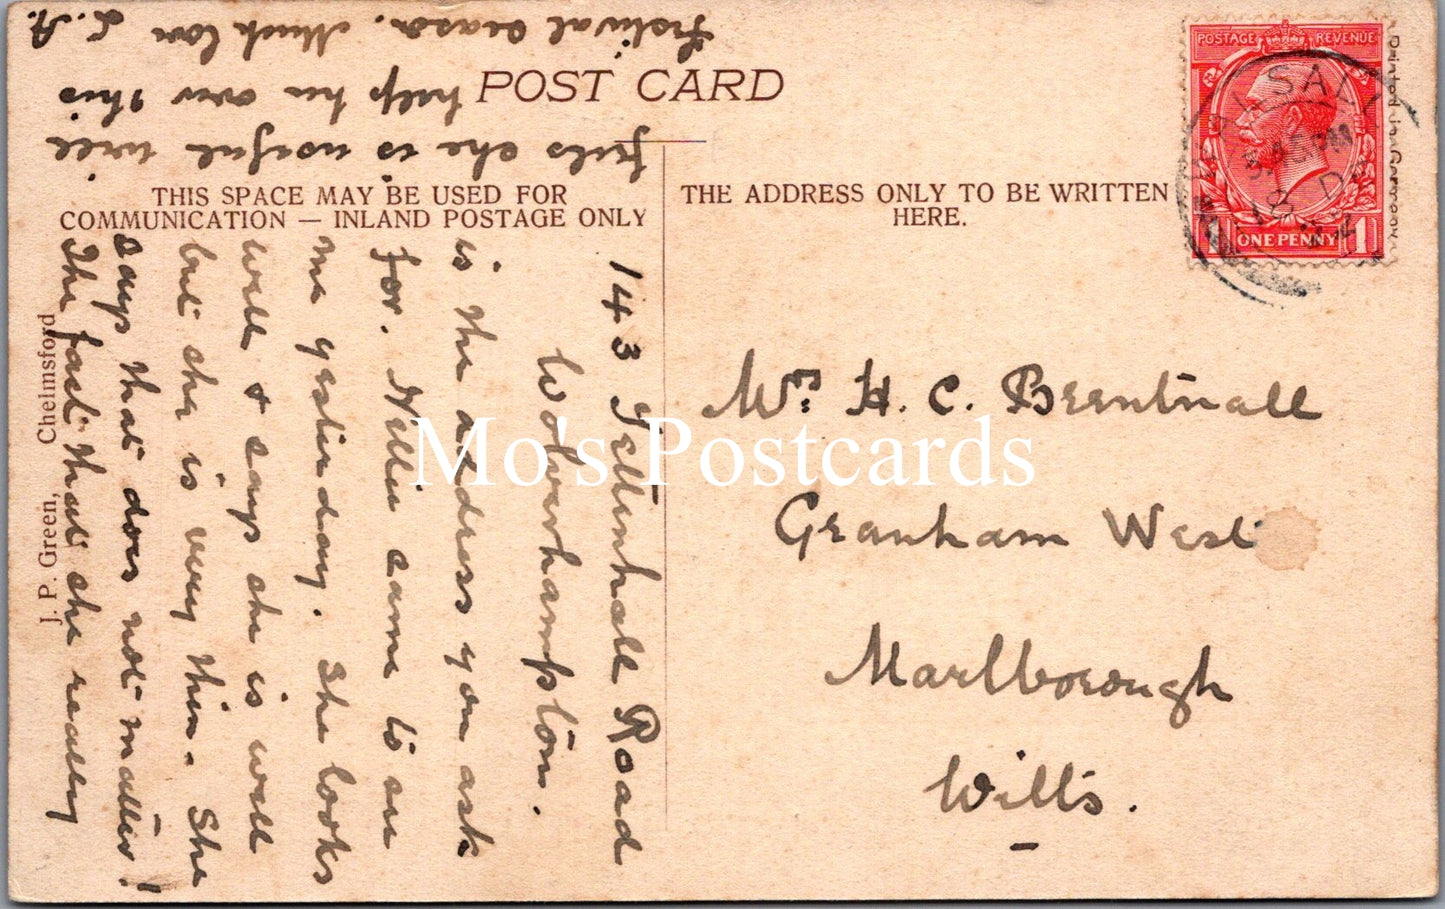 POST CARD
THIS SPACE MAY BE USED FOR
COMMUNICATION — INLAND POSTAGE ONLY
THE ADDRESS ONLY TO BE WRITTEN
HERE.
143 Tettenhall Road
Wolverhampton.
is the address you ask
for. Nellie came to see
me yesterday. She looks
well & says she is well
but she is very thin. She
says that does not matter!
The fact that she really
feels she is useful will
help her over this
Festival season. Much love L.A.
Mrs H. C. Brentnall
Granham West
Marlborough
Wilts.
J. P. Green, Chelmsford
POSTAGE REVENUE
1 ONE PENNY 1
WALSALL
DE
Printed in Germany
Mo's Postcards